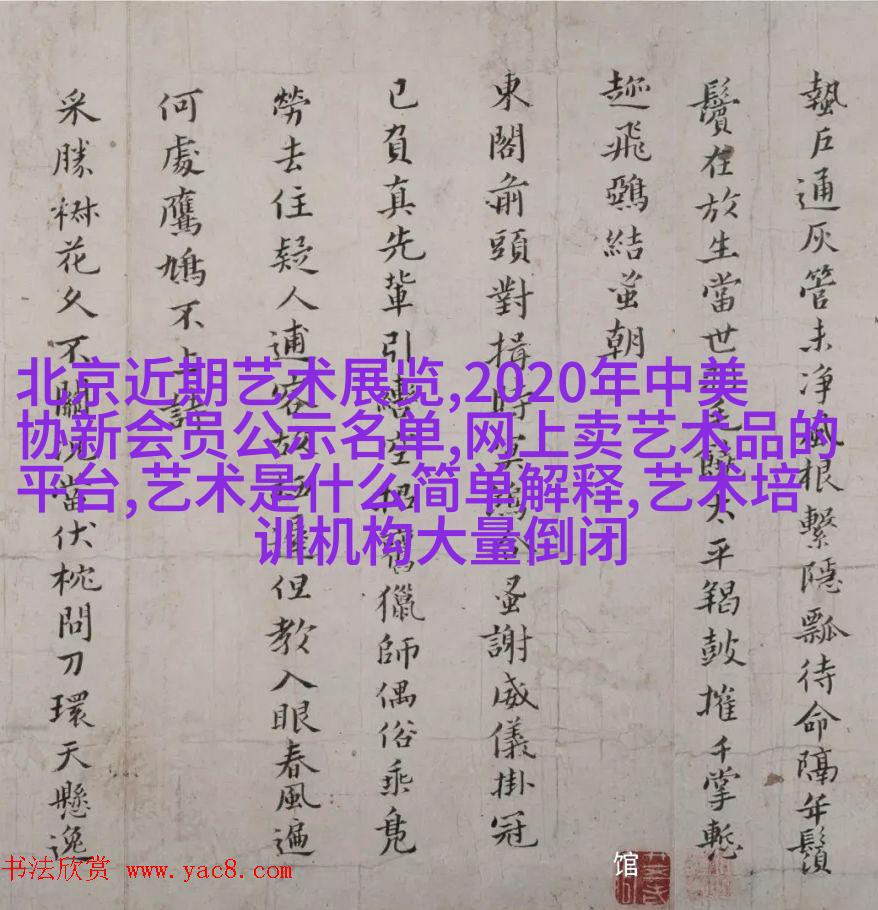 蟄戶通灰管未净風根繫隱瓢待命隔年鬚
鬢在放生當世毛饒太平羯鼓摧千掌慙
飛結蚤朝
東閣前頭對揖時莫蚤謝威儀掛冠
已負真先輩引空招舊獵師偶俗乘鳧
勞去住疑人逋客故但教入眼春風遍
何處鷹鳩不上詩
采勝椒花久不關當伏枕問刀環天懸逸
北京近期艺术展览,2020年中美
协新会员公示名单,网上卖艺术品的
平台,艺术是什么简单解释,艺术培
训机构大量倒闭
书法欣赏 www.yac8.com
馆